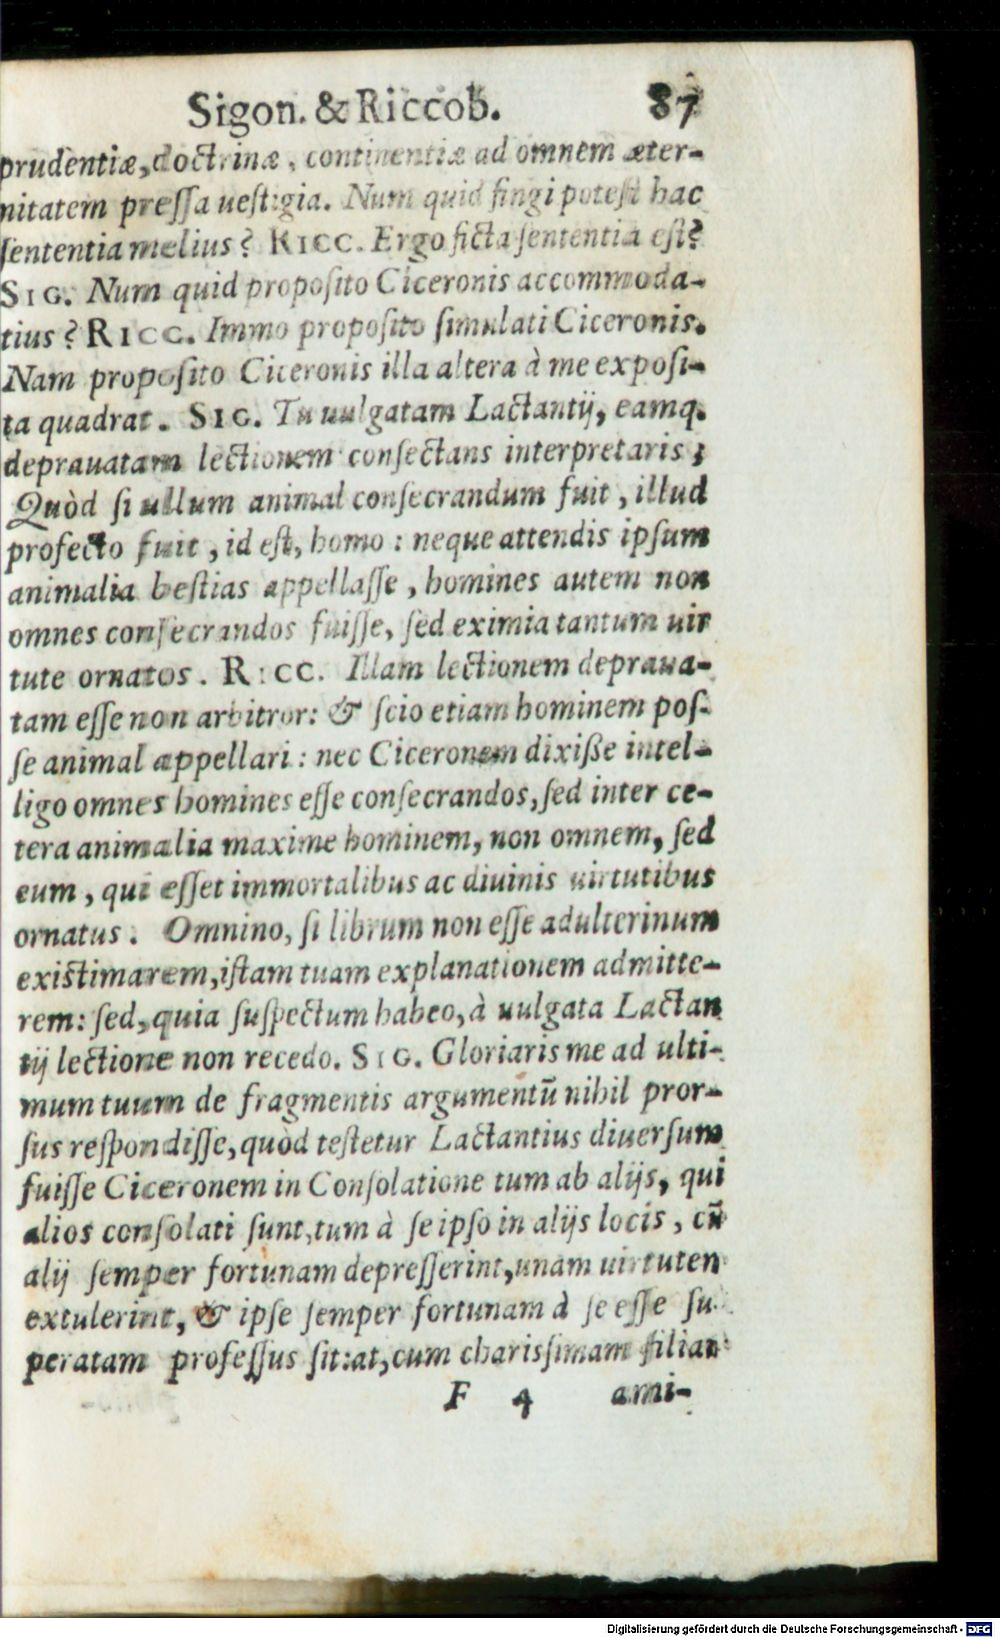 Sigon. & Riccob. 87
prudentiæ, doctrinæ, continentiæ ad omnem æter-
nitatem pressa uestigia. Num quid fingi potest hac
sententia melius? RICC. Ergo ficta sententia est?
SIG. Num quid proposito Ciceronis accommoda-
tius? RICC. Immo proposito simulati Ciceronis.
Nam proposito Ciceronis illa altera à me exposi-
ta quadrat. SIG. Tu uulgatam Lactantij, eamq.
deprauatam lectionem consectans interpretaris;
Quòd si ullum animal consecrandum fuit, illud
profecto fuit, id est, homo: neque attendis ipsum
animalia bestias appellasse, homines autem non
omnes consecrandos fuisse, sed eximia tantum uir
tute ornatos. RICC. Illam lectionem depraua-
tam esse non arbitror: & scio etiam hominem pos-
se animal appellari: nec Ciceronem dixiße intel-
ligo omnes homines esse consecrandos, sed inter ce-
tera animalia maxime hominem, non omnem, sed
eum, qui esset immortalibus ac diuinis uirtutibus
ornatus. Omnino, si librum non esse adulterinum
existimarem, istam tuam explanationem admitte-
rem: sed, quia suspectum habeo, à uulgata Lactan
tij lectione non recedo. SIG. Gloriaris me ad ulti-
mum tuum de fragmentis argumentū nihil pror-
sus respondisse, quòd testetur Lactantius diuersum
fuisse Ciceronem in Consolatione tum ab alijs, qui
alios consolati sunt, tum à se ipso in alijs locis, cū
alij semper fortunam depresserint, unam uirtutem
extulerint, & ipse semper fortunam à se esse su-
peratam professus sit: at, cum charissimam filiam
F 4 ami-
Digitalisierung gefördert durch die Deutsche Forschungsgemeinschaft - DFG